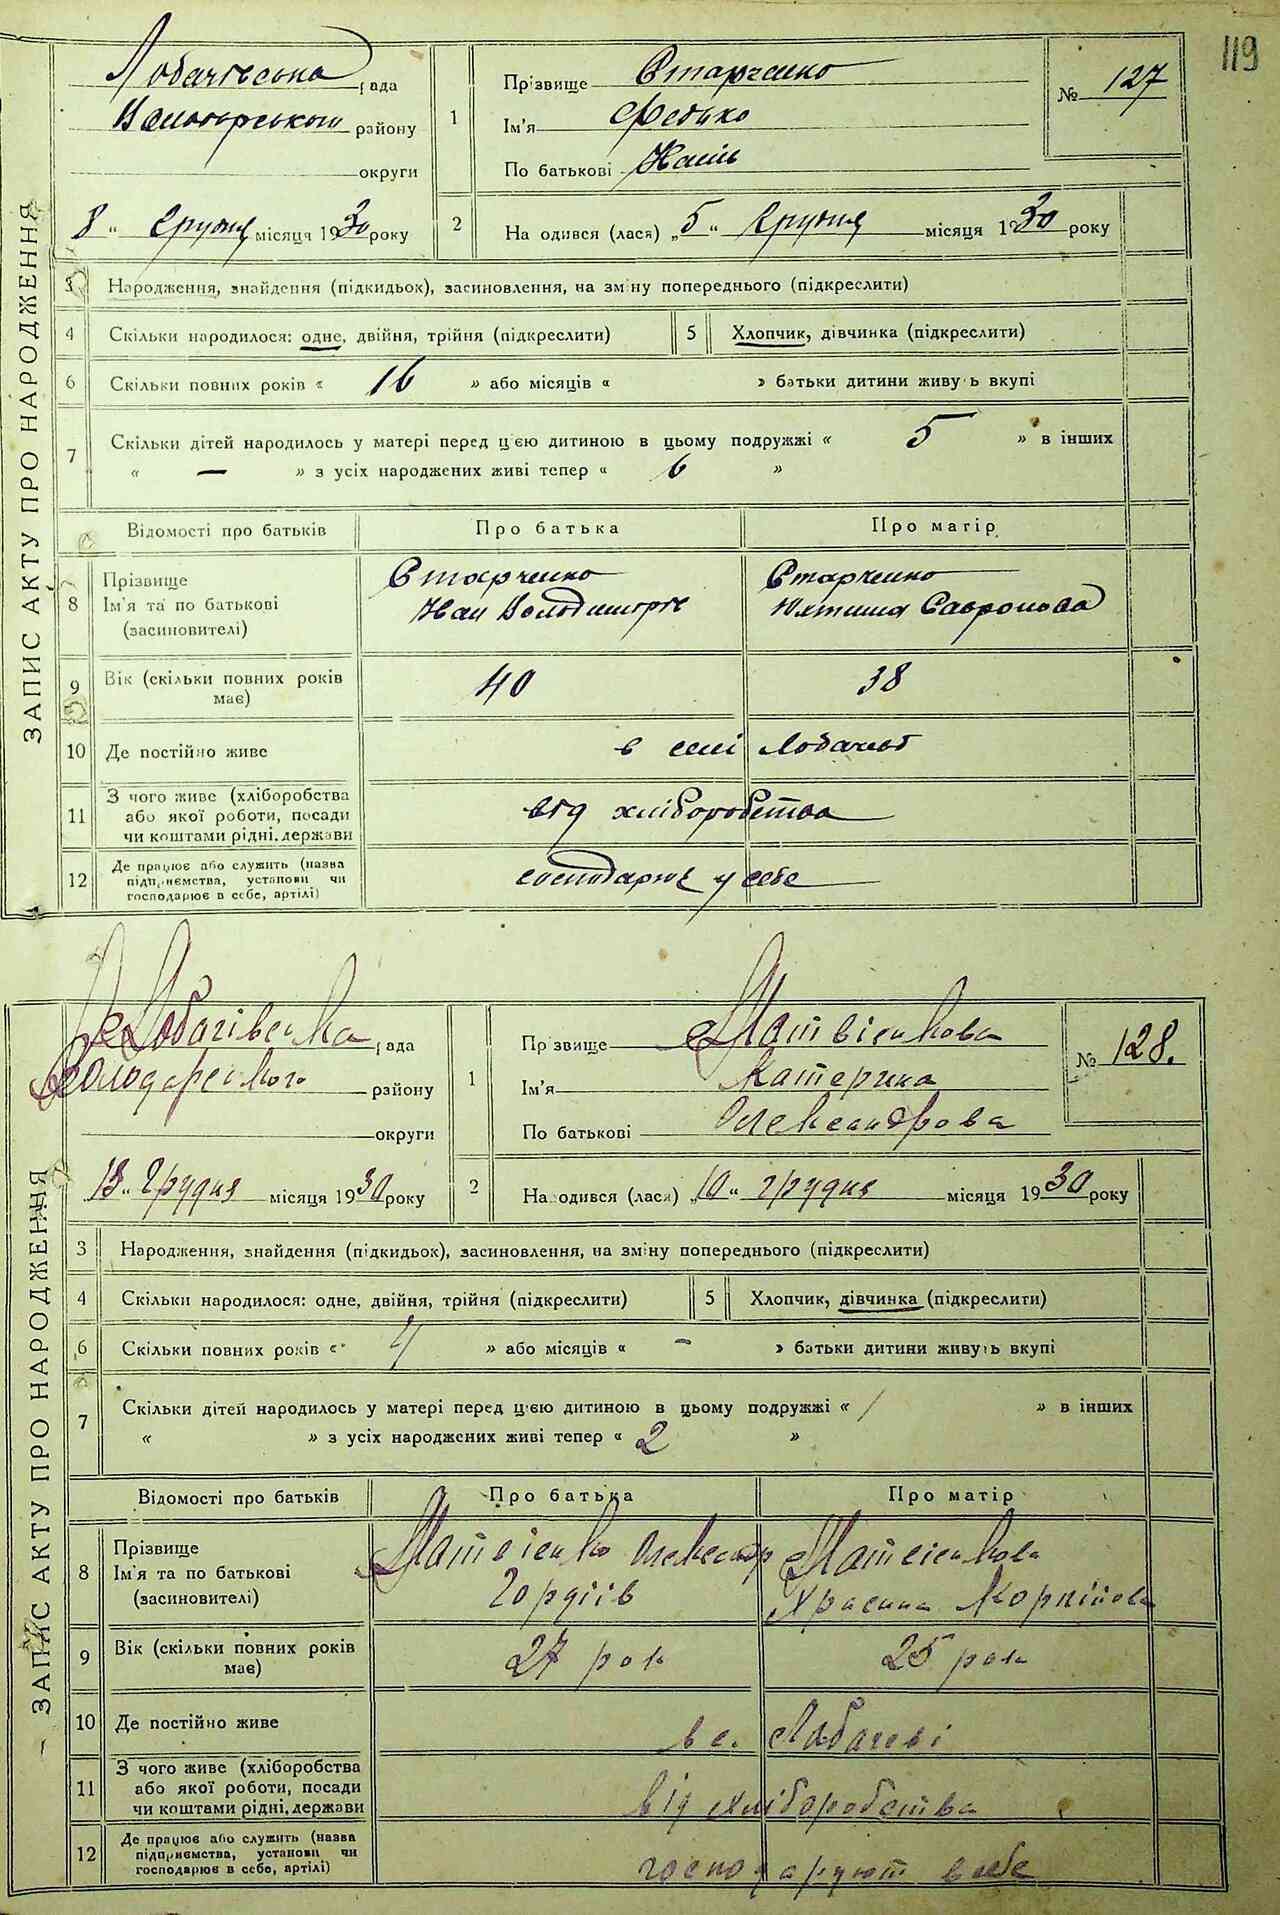 119
ЗАПИС АКТУ ПРО НАРОДЖЕННЯ
Лобачівська рада
району
округи
8 " Грудня місяця 1930 року
1
Прізвище Старченко
Ім'я Федько
По батькові
№ 127
2
Народився (лася) „5" Грудня місяця 1930 року
3 Народження, знайдення (підкидьок), засиновлення, на зміну попереднього (підкреслити)
4 Скільки народилося: одне, двійня, трійня (підкреслити)
5 Хлопчик, дівчинка (підкреслити)
6 Скільки повних років « 16 » або місяців « » батьки дитини живуть вкупі
7 Скільки дітей народилось у матері перед цією дитиною в цьому подружжі « 5 » в інших
« — » з усіх народжених живі тепер « 6 »
Відомості про батьків Про батька Про матір
8 Прізвище
Ім'я та по батькові
(засиновителі)
Старченко
Іван
Старченко
Юхтина Сафронова
9 Вік (скільки повних років має)
40
38
10 Де постійно живе
в селі Лобачеві
11 З чого живе (хліборобства
або якої роботи, посади
чи коштами рідні, держави
від хліборобства
12 Де працює або служить (назва
підприємства, установи чи
господарює в себе, артілі)
господарює у себе
ЗАПИС АКТУ ПРО НАРОДЖЕННЯ
Лобачівська рада
Володарського району
округи
13 " Грудня місяця 1930 року
1
Прізвище Матвієнкова
Ім'я Катерина
По батькові Олександрова
№ 128.
2
Народився (лася) „10" грудня місяця 1930 року
3 Народження, знайдення (підкидьок), засиновлення, на зміну попереднього (підкреслити)
4 Скільки народилося: одне, двійня, трійня (підкреслити)
5 Хлопчик, дівчинка (підкреслити)
6 Скільки повних років « 4 » або місяців « – » батьки дитини живуть вкупі
7 Скільки дітей народилось у матері перед цією дитиною в цьому подружжі « 1 » в інших
« » з усіх народжених живі тепер « 2 »
Відомості про батьків Про батька Про матір
8 Прізвище
Ім'я та по батькові
(засиновителі)
Матвієнко Олександр
Гордіїв
Матвієнкова
9 Вік (скільки повних років має)
27 рок
25 рок
10 Де постійно живе
в с. Лобачеві
11 З чого живе (хліборобства
або якої роботи, посади
чи коштами рідні, держави
від хліборобства
12 Де працює або служить (назва
підприємства, установи чи
господарює в себе, артілі)
господарюют в себе